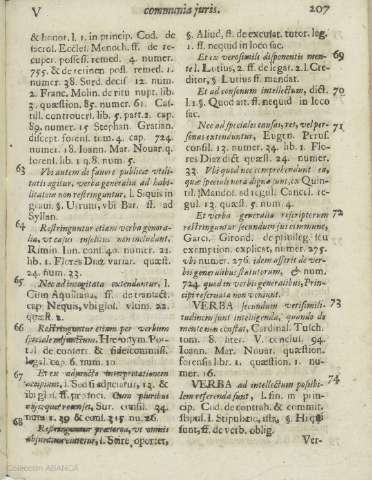 V communia juris. 207
& honor. l. 1. in princip. Cod. de
sacros. Eccles. Menoch. ff. de re-
cuper. possess. remed. 4. numer.
755. & de retinen. poss. remed. 1.
numer. 38. Surd. decis. 12. num.
2. Franc. Molin. de ritu nupt. lib.
3. quæstion. 85. numer. 61. Cas-
till. controvers. lib. 5. part. 2. cap.
89. numer. 15 Stephan. Gratian.
discept. forens. tom. 4. cap. 724.
numer. 18. Ioann. Mar. Novar. q.
forens. lib. 1 q. 8. num. 5.
63 Vbi autem de favore publicæ utili-
tatis agitur, verba generalia ad habi-
litatem non restringuntur, l. Siquis in
gravi. §. Utrum, vbi Bar. ff. ad
Syllan.
64 Restringuntur etiam verba genera-
lia, vt casus insolitus non includant,
Rimin. Iun. cons. 40. numer. 21.
lib. 1. Flores Diaz variar. quæst.
24. num. 33.
65 Nec ad incogitata extenduntur, l.
Cum Aquiliana, ff. de transact.
cap. Nequis, vbi glos. vlum. 22.
quæst. 2.
66 Restringuntur etiam per verbum
speciale adjunctum. Hieronym. Por-
tol. de consort. & fideicommiss.
legal. cap. 6. num. 10.
67 Et ex adjuncto interpretationem
accipiunt, l. Sed si adjiciatur, 12. &
ibi glos. ff. pro soci. Cum pluribus
alijs, quæ recenset, Sur. consil. 34.
num. 1. 29. & cons. 315. nu. 26.
68 Restringuntur præterea, vt omnis
absurditas vitetur, l. Scire oportet,
§. Aliud, ff. de excusat. tutor. leg.
1. ff. nequid in loco sac.
69 Et ex verosimili disponentis men-
te l. Lutius, 2. ff. de legat. 2. l. Cre-
ditor, § Lutius ff. mandat.
70 Et ad consonum intellectum, dict.
l. 1. §. Quod ait. ff. nequid in loco
sac.
71 Nec ad speciales causas, res, vel per-
sonas extenduntur, Eugen. Perus.
consil. 13. numer. 34. lib. 1. Flo-
res Diaz dict quæst. 24. numer.
33. Vbi quod nec comprehendunt ea,
quæ speciali nota digna sunt, ex Quin-
til. Mandos. ad regul. Cancel. re-
gul. 13. quæst. 5 num. 4.
72 Et verba generalia rescriptorum
restringuntur secundum jus commune,
Garci. Girond. de privileg. seu
exemption. explicit, numer. 275.
vbi numer. 276. idem asserit de ver-
bis generalibus statutorum, & num.
724. quod in verbis generalibus, Prin-
cipi reservata non veniunt.
73 VERBA secundum verisimili-
tudinem sunt intelligenda, quando de
mente non constat, Cardinal. Tusch.
tom. 8. liter. V. conclus. 94.
Ioann. Mar. Novar. quæstion.
forensis lib. 1. quæstion. 1. nu-
mer. 16.
74 VERBA ad intellectum possibi-
lem referenda sunt, l. fin. in prin-
cip. Cod. de contrah. & commit.
stipul. l. Stipulatio, ista, §. Hi qui
sunt, ff. de verb. oblig.
Ver-
Colección ABANCA